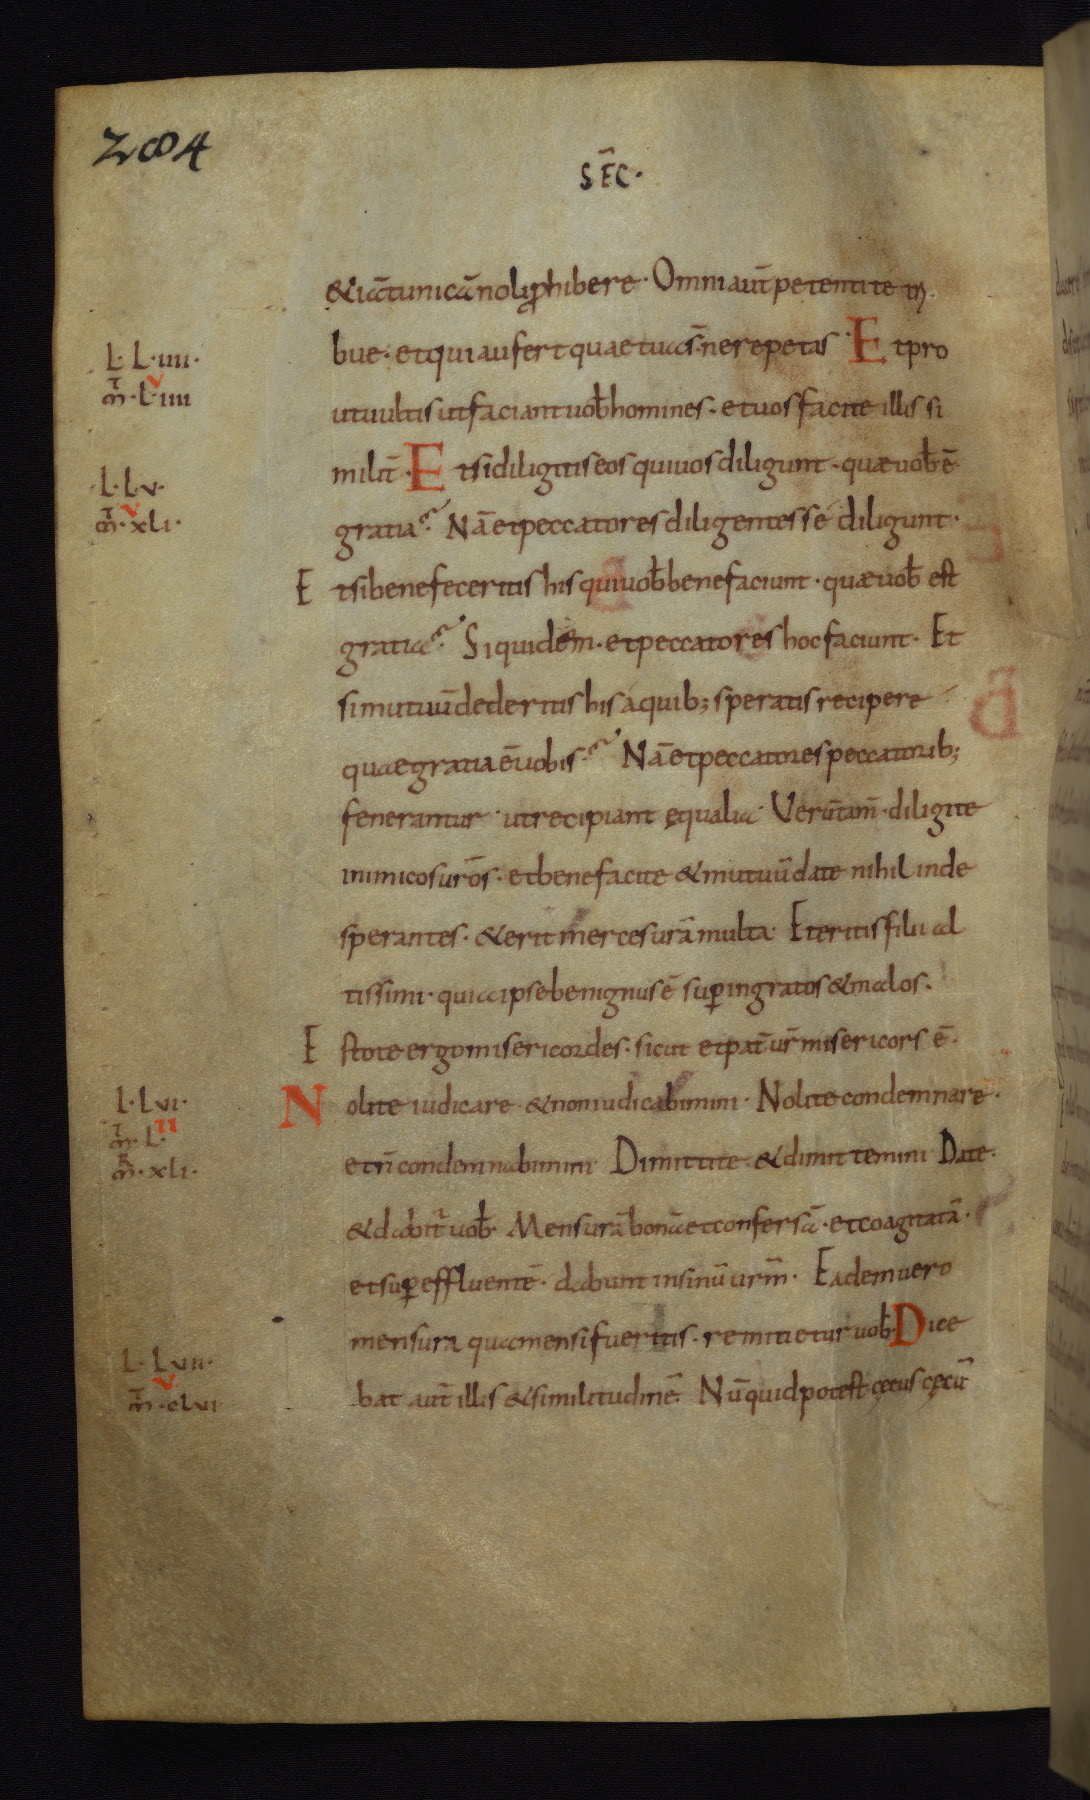 2884
SEC̄·
&iā tunicā noli ꝓhibere· Omni aut̄ petenti te tri
bue· et qui aufert quae tua s̄· ne repetas· Et pro
ut uultis ut faciant uob̄ homines· et uos facite illis si
milit̄· Et si diligitis eos qui uos diligunt· quae uob̄ ē
gratia? Nā et peccatores diligentes se diligunt·
Et si benefeceritis his qui uob̄ benefaciunt· quae uob̄ est
gratia? Si quidem· et peccatores hoc faciunt· Et
si mutuū dederitis his a quib; speratis recipere
quae gratia ē uobis? Nā et peccatores peccatorib;
fenerantur· ut recipiant ęqualia· Verūtam̄· diligite
inimicos ur̄os· et benefacite & mutuū date nihil inde
sperantes· & erit merces ur̄a multa· Et eritis filii al
tissimi· quia ipse benignus ē sup̄ ingratos & malos·
Estote ergo misericordes· sicut et pat̄ ur̄ misericors ē·
Nolite iudicare & non iudicabimini· Nolite condemnare·
et n̄ condemnabimini· Dimittite· & dimittemini· Date·
& dabit̄ uob̄· Mensurā bonā et confersā· et coagitatā·
et sup̄effluentē· dabunt in sinū ur̄m· Eadem uero
mensura qua mensi fueritis· remitietur uob̄· Dice
bat aut̄ illis & similitudinē· Nūquid potest cęcus cęcū
L· L·iiii·
m̄·L·iiii
v
L· Lv·
m̄·xLi·
v
L· Lvi·
m̄· L·
ii
m̄·xLi·
L· Lvii·
m̄·cLvi
v